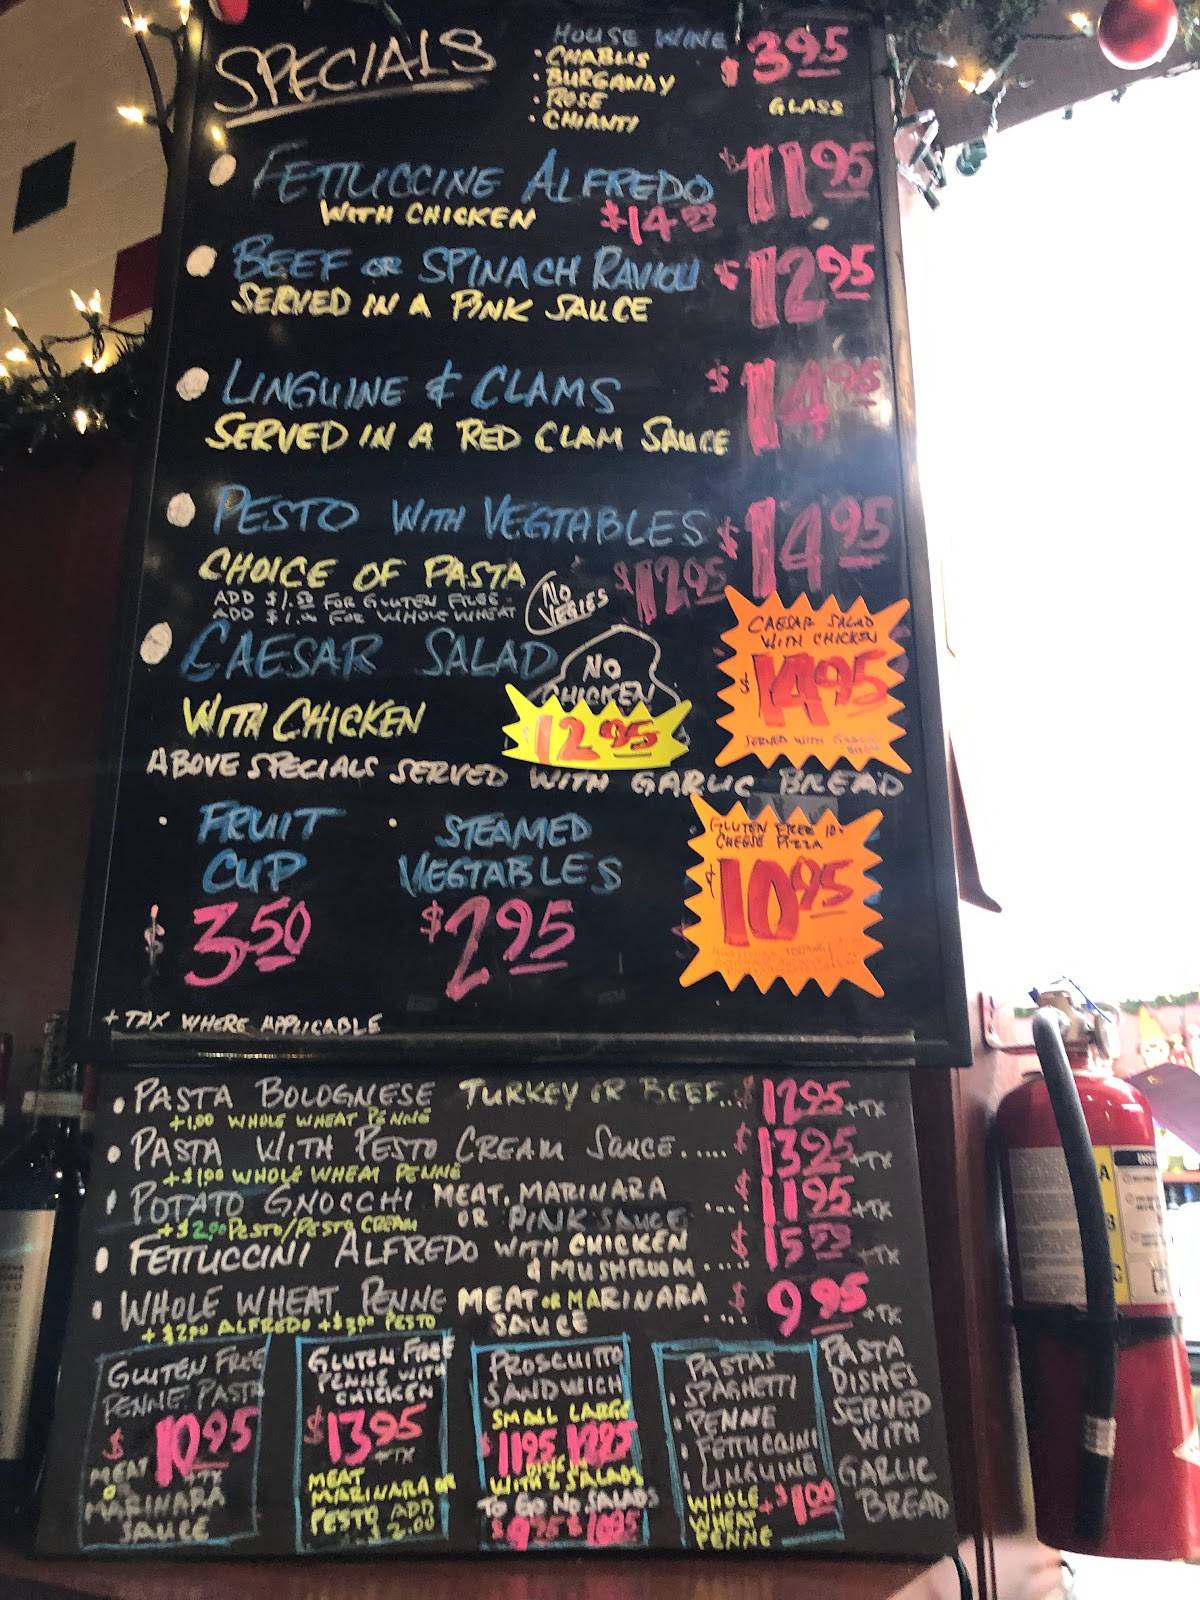 SPECIALS
HOUSE WINE
• CHABLIS
• BURGANDY
• ROSE
• CHIANTI
$3.95
GLASS
FETTUCCINE ALFREDO $11.95
WITH CHICKEN
BEEF OR SPINACH RAVIOLI $12.95
SERVED IN A PINK SAUCE
LINGUINE & CLAMS $14.95
SERVED IN A RED CLAM SAUCE
PESTO WITH VEGTABLES $14.95
CHOICE OF PASTA
NO VEGIES
$12.95
ADD $1.50 FOR GLUTEN FREE -
ADD $1.00 FOR WHOLE WHEAT
CAESAR SALAD
WITH CHICKEN
NO
CHICKEN
$12.95
CAESAR SALAD
WITH CHICKEN
$14.95
SERVED WITH GARLIC
BREAD
ABOVE SPECIALS SERVED WITH GARLIC BREAD
• FRUIT
CUP
$3.50
• STEAMED
VEGTABLES
$2.95
GLUTEN FREE 10"
CHEESE PIZZA
$10.95
+ TAX WHERE APPLICABLE
• PASTA BOLOGNESE TURKEY OR BEEF..$12.95+TX
+1.00 WHOLE WHEAT PENNE
• PASTA WITH PESTO CREAM SAUCE.....$13.25+TX
+$1.00 WHOLE WHEAT PENNE
• POTATO GNOCCHI MEAT, MARINARA
OR PINK SAUCE ....$11.95+TX
+$2.00 PESTO/PESTO CREAM
• FETTUCCINI ALFREDO WITH CHICKEN
& MUSHROOM....$15.50+TX
• WHOLE WHEAT PENNE MEAT OR MARINARA
SAUCE ....$9.95+TX
+$2.00 ALFREDO +$3.00 PESTO
GLUTEN FREE
PENNE PASTA
$10.95
+TX
MEAT
OR
MARINARA
SAUCE
GLUTEN FREE
PENNE WITH
CHICKEN
$13.95
+TX
MEAT
MARINARA OR
PESTO ADD
$2.00
PROSCUITTO
SANDWICH
SMALL LARGE
$11.95 12.95
DINE IN
WITH 2 SALADS
TO GO NO SALADS
$9.95 $10.95
PASTAS
• SPAGHETTI
• PENNE
• FETTUCCINI
• LINGUINE
WHOLE
WHEAT
PENNE
+$1.00
PASTA
DISHES
SERVED
WITH
GARLIC
BREAD